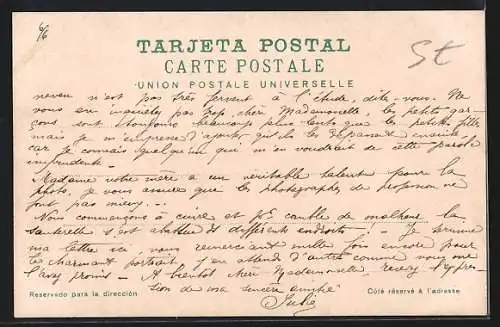 6/6
TARJETA POSTAL
St
CARTE POSTALE
UNION POSTALE UNIVERSELLE
neveu n'est pas très fervent à l'étude, dites-vous. Ne
vous en inquiétez pas trop chère Mademoiselle, les petits gar-
çons sont toujours beaucoup plus lents que les petites filles
mais je m'empresse d'ajouter qu'ils les dépassent ensuite,
car je connais quelqu'un qui m'en voudrait de cette parole
imprudente.
Madame votre mère a un véritable talent pour la
photo, je vous assure que les photographes de profession ne
font pas mieux...
Nous commençons à cuire et pr comble de malheur la
sauterelle s'est abattue ds différents endroits! - Je termine
ma lettre ici, vous remerciant mille fois encore pour
le charmant portrait. J'en attends d'autres comme vous me
l'avez promis - A bientôt chère Mademoiselle, recevez l'expres-
sion de ma sincère amitié
Julie
Reservado para la dirección
Côté réservé à l'adresse